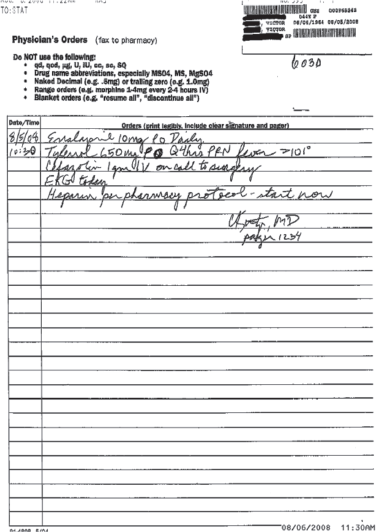 TO:STAT
VICTOR
VICTOR
Physician's Orders (fax to pharmacy)
6030
Do NOT use the following:
• qd, qod, µg, U, IU, cc, sc, SQ
• Drug name abbreviations, especially MSO4, MS, MgSO4
• Naked Decimal (e.g. .5mg) or trailing zero (e.g. 1.0mg)
• Range orders (e.g. morphine 1-4mg every 2-4 hours IV)
• Blanket orders (e.g. "resume all", "discontinue all")
Date/Time Orders (print legibly, include clear signature and pager)
8/5/08 Enalapril 10mg Po Daily
10:30 Tylenol 650 mg PO Q4hrs PRN fever >101°
Cefazolin 1gm IV on call to surgery
EKG today
Heparin per pharmacy protocol - start now
MD
pager 1234
08/06/2008 11:30AM